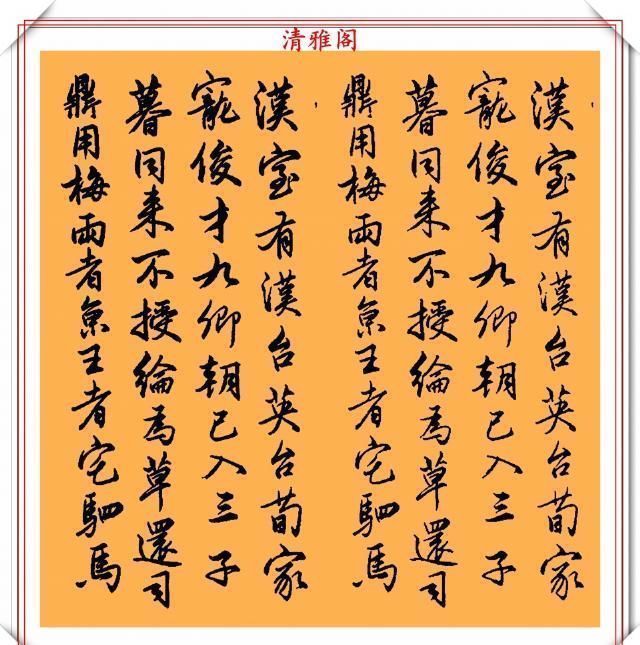 清雅阁
漢室有漢台英台荀家
寵俊才九卿朝已入三子
暮同来不授綸為草還司
鼎用梅兩者京王者宅駟馬
漢室有漢台英台荀家
寵俊才九卿朝已入三子
暮同来不授綸為草還司
鼎用梅兩者京王者宅駟馬